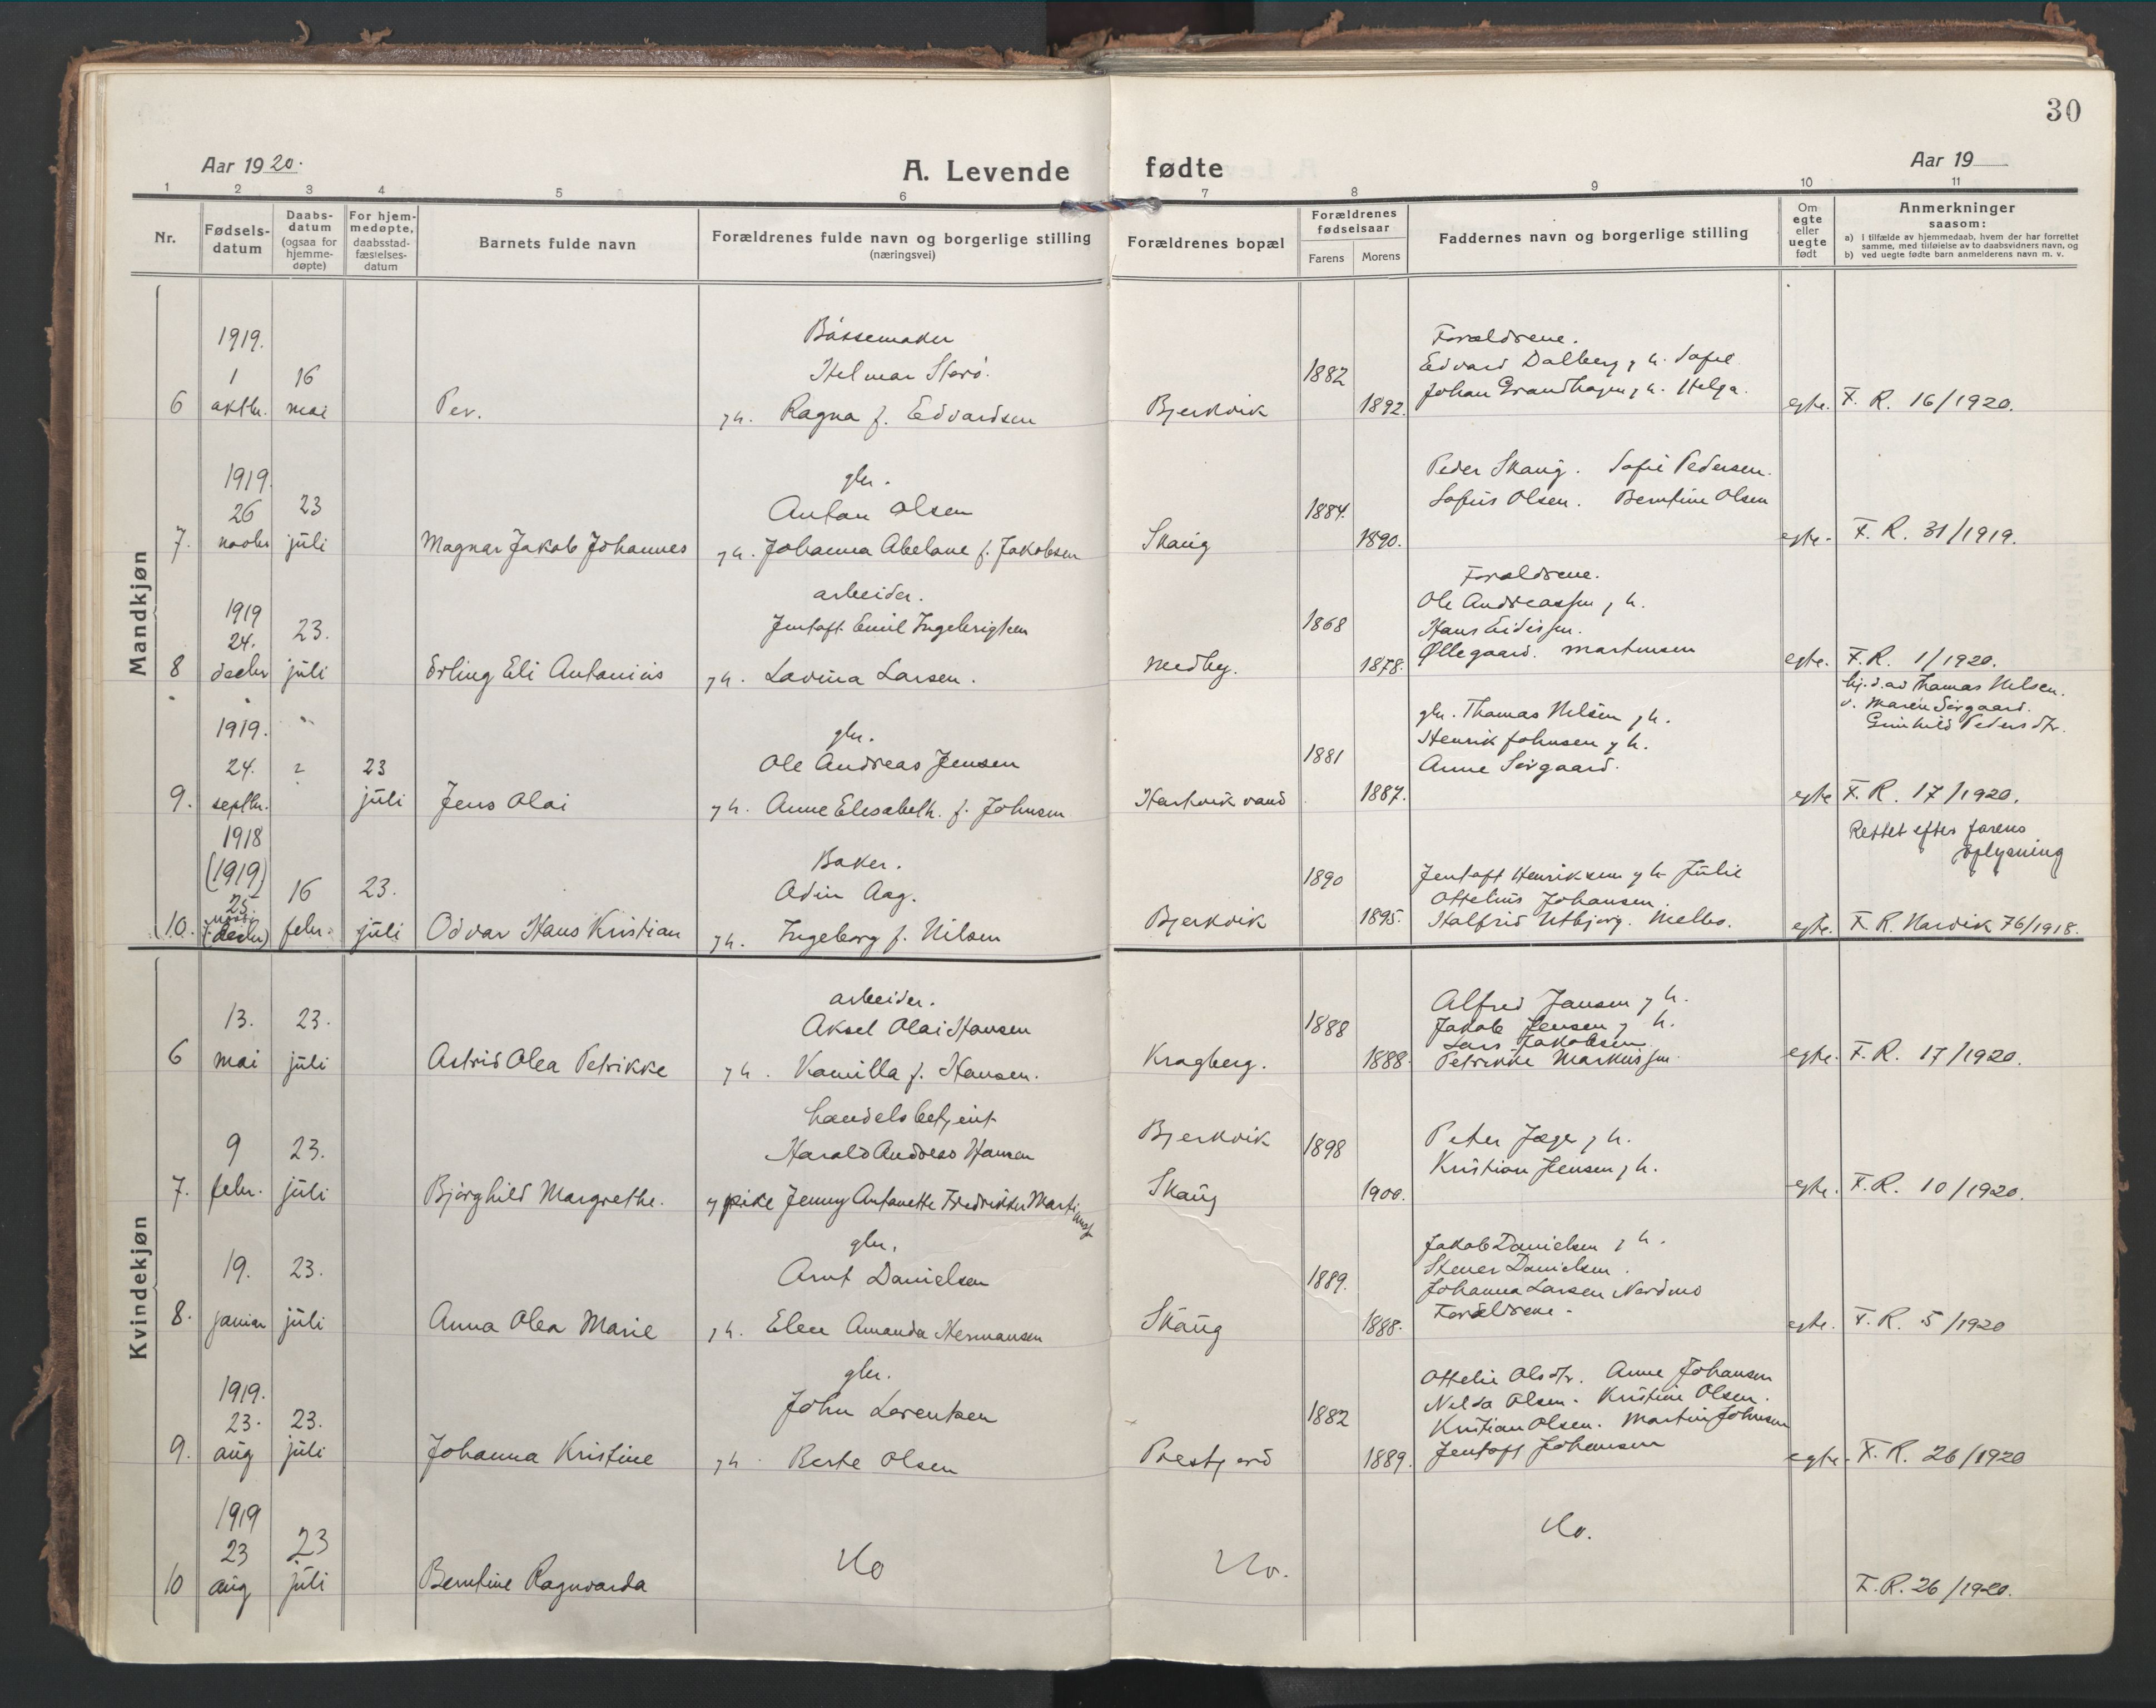 30
Aar 1920.
A. Levende fødte
Aar 19
1 2 3 4 5 6 7 8 9 10 11
Nr.
Fødsels-
datum
Daabs-
datum
(ogsaa for
hjemme-
døpte)
For hjem-
medøpte,
daabsstad-
fæstelses-
datum
Barnets fulde navn
Forældrenes fulde navn og borgerlige stilling
(næringsvei)
Forældrenes bopæl
Forældrenes
fødselsaar
Farens Morens
Faddernes navn og borgerlige stilling
Om
egte
eller
uegte
født
Anmerkninger
saasom:
a) I tilfælde av hjemmedaab, hvem der har forrettet
samme, med tilføielse av to daabsvidners navn, og
b) ved uegte fødte barn anmelderens navn m. v.
Mandkjøn
6
1919.
1
oktbr.
16
mai
Per.
Bössemaker
Helmar Storö.
h. Ragna f. Edvardsen
Bjerkvik
1882
1892.
Forældrene.
Edvard Dalberg h. Sofie
Johan Grandhagen h. Helga.
egte.
F. R. 16/1920.
7.
1919.
26
novbr
23
juli
Magnar Jakob Johannes
gbr.
Anton Olsen
h. Johanna Abelone f. Jakobsen
Skaug
1884.
1890.
Peder Skaug. Sofie Pedersen.
Sofus Olsen. Berntine Olsen
egte.
F. R. 31/1919.
8
1919
24.
decbr
23.
juli
Erling Eli Antonius
arbeider.
Jentoft Emil Ingebrigtsen
h. Lovina Larsen.
Medby.
1868
1878.
Forældrene.
Ole Andreassen h.
Hans Eidissen.
Øllegaard. Martinsen
egte.
F. R. 1/1920.
9.
1919.
24.
septbr.
2
23
juli
Jens Olai
gbr.
Ole Andreas Jensen
h. Anne Elesabeth. f. Johnsen
Hartvikvand
1881
1887.
gbr. Thomas Nilsen h.
Henrik Johnsen h.
Anne Sörgaard.
egte
hj. d. av Thomas Nilsen.
v. Maren Sörgaard.
Gunhild Pedersdtr.
F. R. 17/1920.
10.
1918
(1919)
25.
novbr.
(decbr)
16
febr.
23.
juli
Odvar Hans Kristian
Baker.
Odin Aag.
h. Ingeborg f. Nilsen
Bjerkvik
1890
1895.
Jentoft Henriksen h. Julie
Ottelius Johansen.
Halfrid Utbjörg. Melbo.
egte.
Rettet efter farens
oplysning
F. R. Narvik 76/1918.
Kvindekjøn
6
13.
mai
23.
juli
Astrid Olea Petrikke
arbeider.
Aksel Olai Hansen
h. Kamilla f. Hansen.
Kragberg.
1888
1888.
Alfred Jansen h.
Jakob Jensen h.
Lars Jakobsen
Petrikke Markussen
egte.
F. R. 17/1920.
7.
9
febr.
23.
juli
Bjørghild Margrethe.
handelsbetjent
Harald Andreas Hansen
pike Jenny Antonette Fredrikke Martinusf
Bjerkvik
Skaug
1898
1900.
Peter Jæger h.
Kristian Jensen h.
egte.
F. R. 10/1920.
8.
19.
januar
23.
juli
Anna Olea Marie
gbr.
Arnt Danielsen
h. Elen Amanda Hermansen
Skaug
1889.
1888.
Jakob Danielsen h.
Stener Danielsen.
Johanna Larsen Nordmo
Forældrene.
egte.
F. R. 5/1920
9.
1919.
23.
aug
23.
juli
Johanna Kristine
gbr.
John Lorentsen
h. Berte Olsen
Prestjord
1882
1889.
Ottelie Olsdtr. Anne Johansen
Nelda Olsen. Kristine Olsen.
Kristian Olsen. Martin Johnsen
Jentoft Johansen
egte.
F. R. 26/1920
10
1919
23
aug
23
juli
Berntine Ragnvarda
Do
Do.
Do.
F. R. 26/1920.